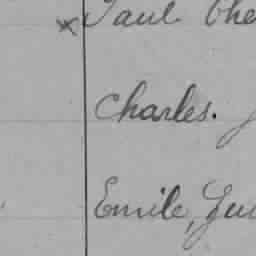 x Paul Che
Charles.
Emile, Gu